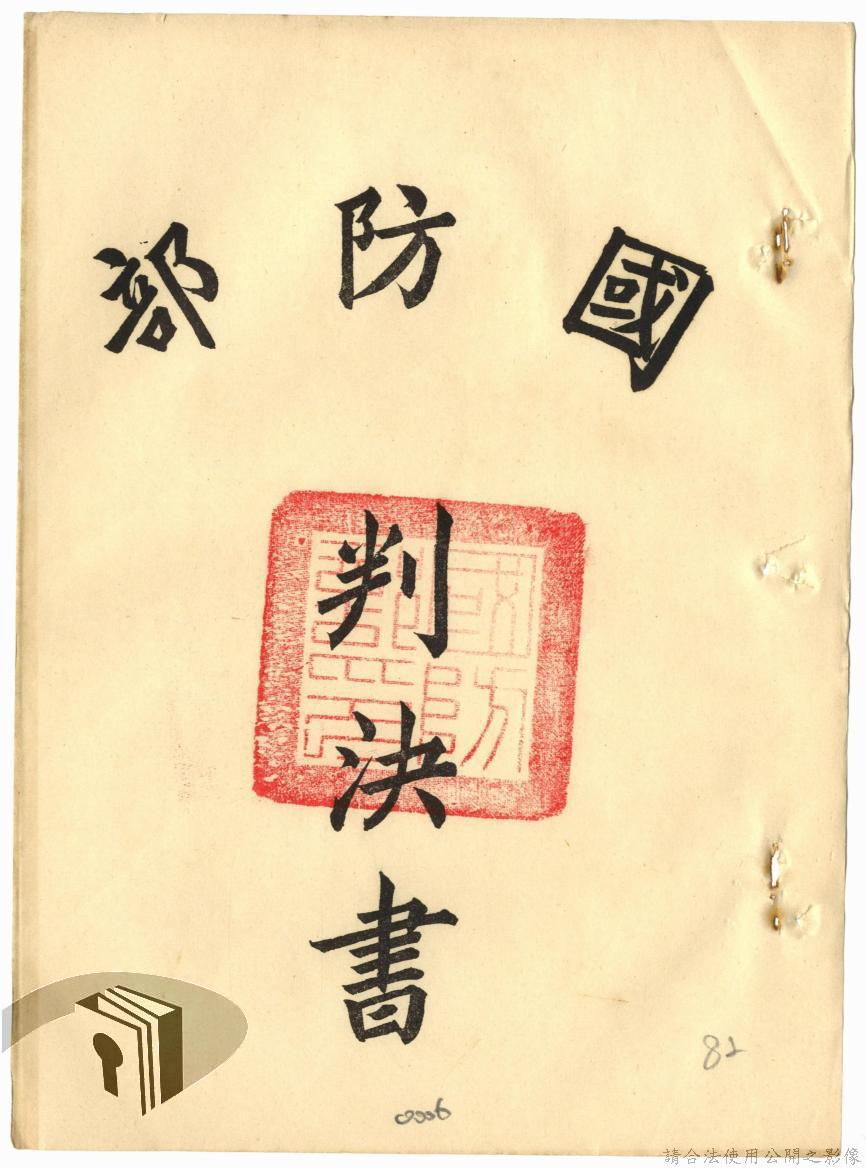 國防部
判決書
國防部印
82
0006
請合法使用公開之影像